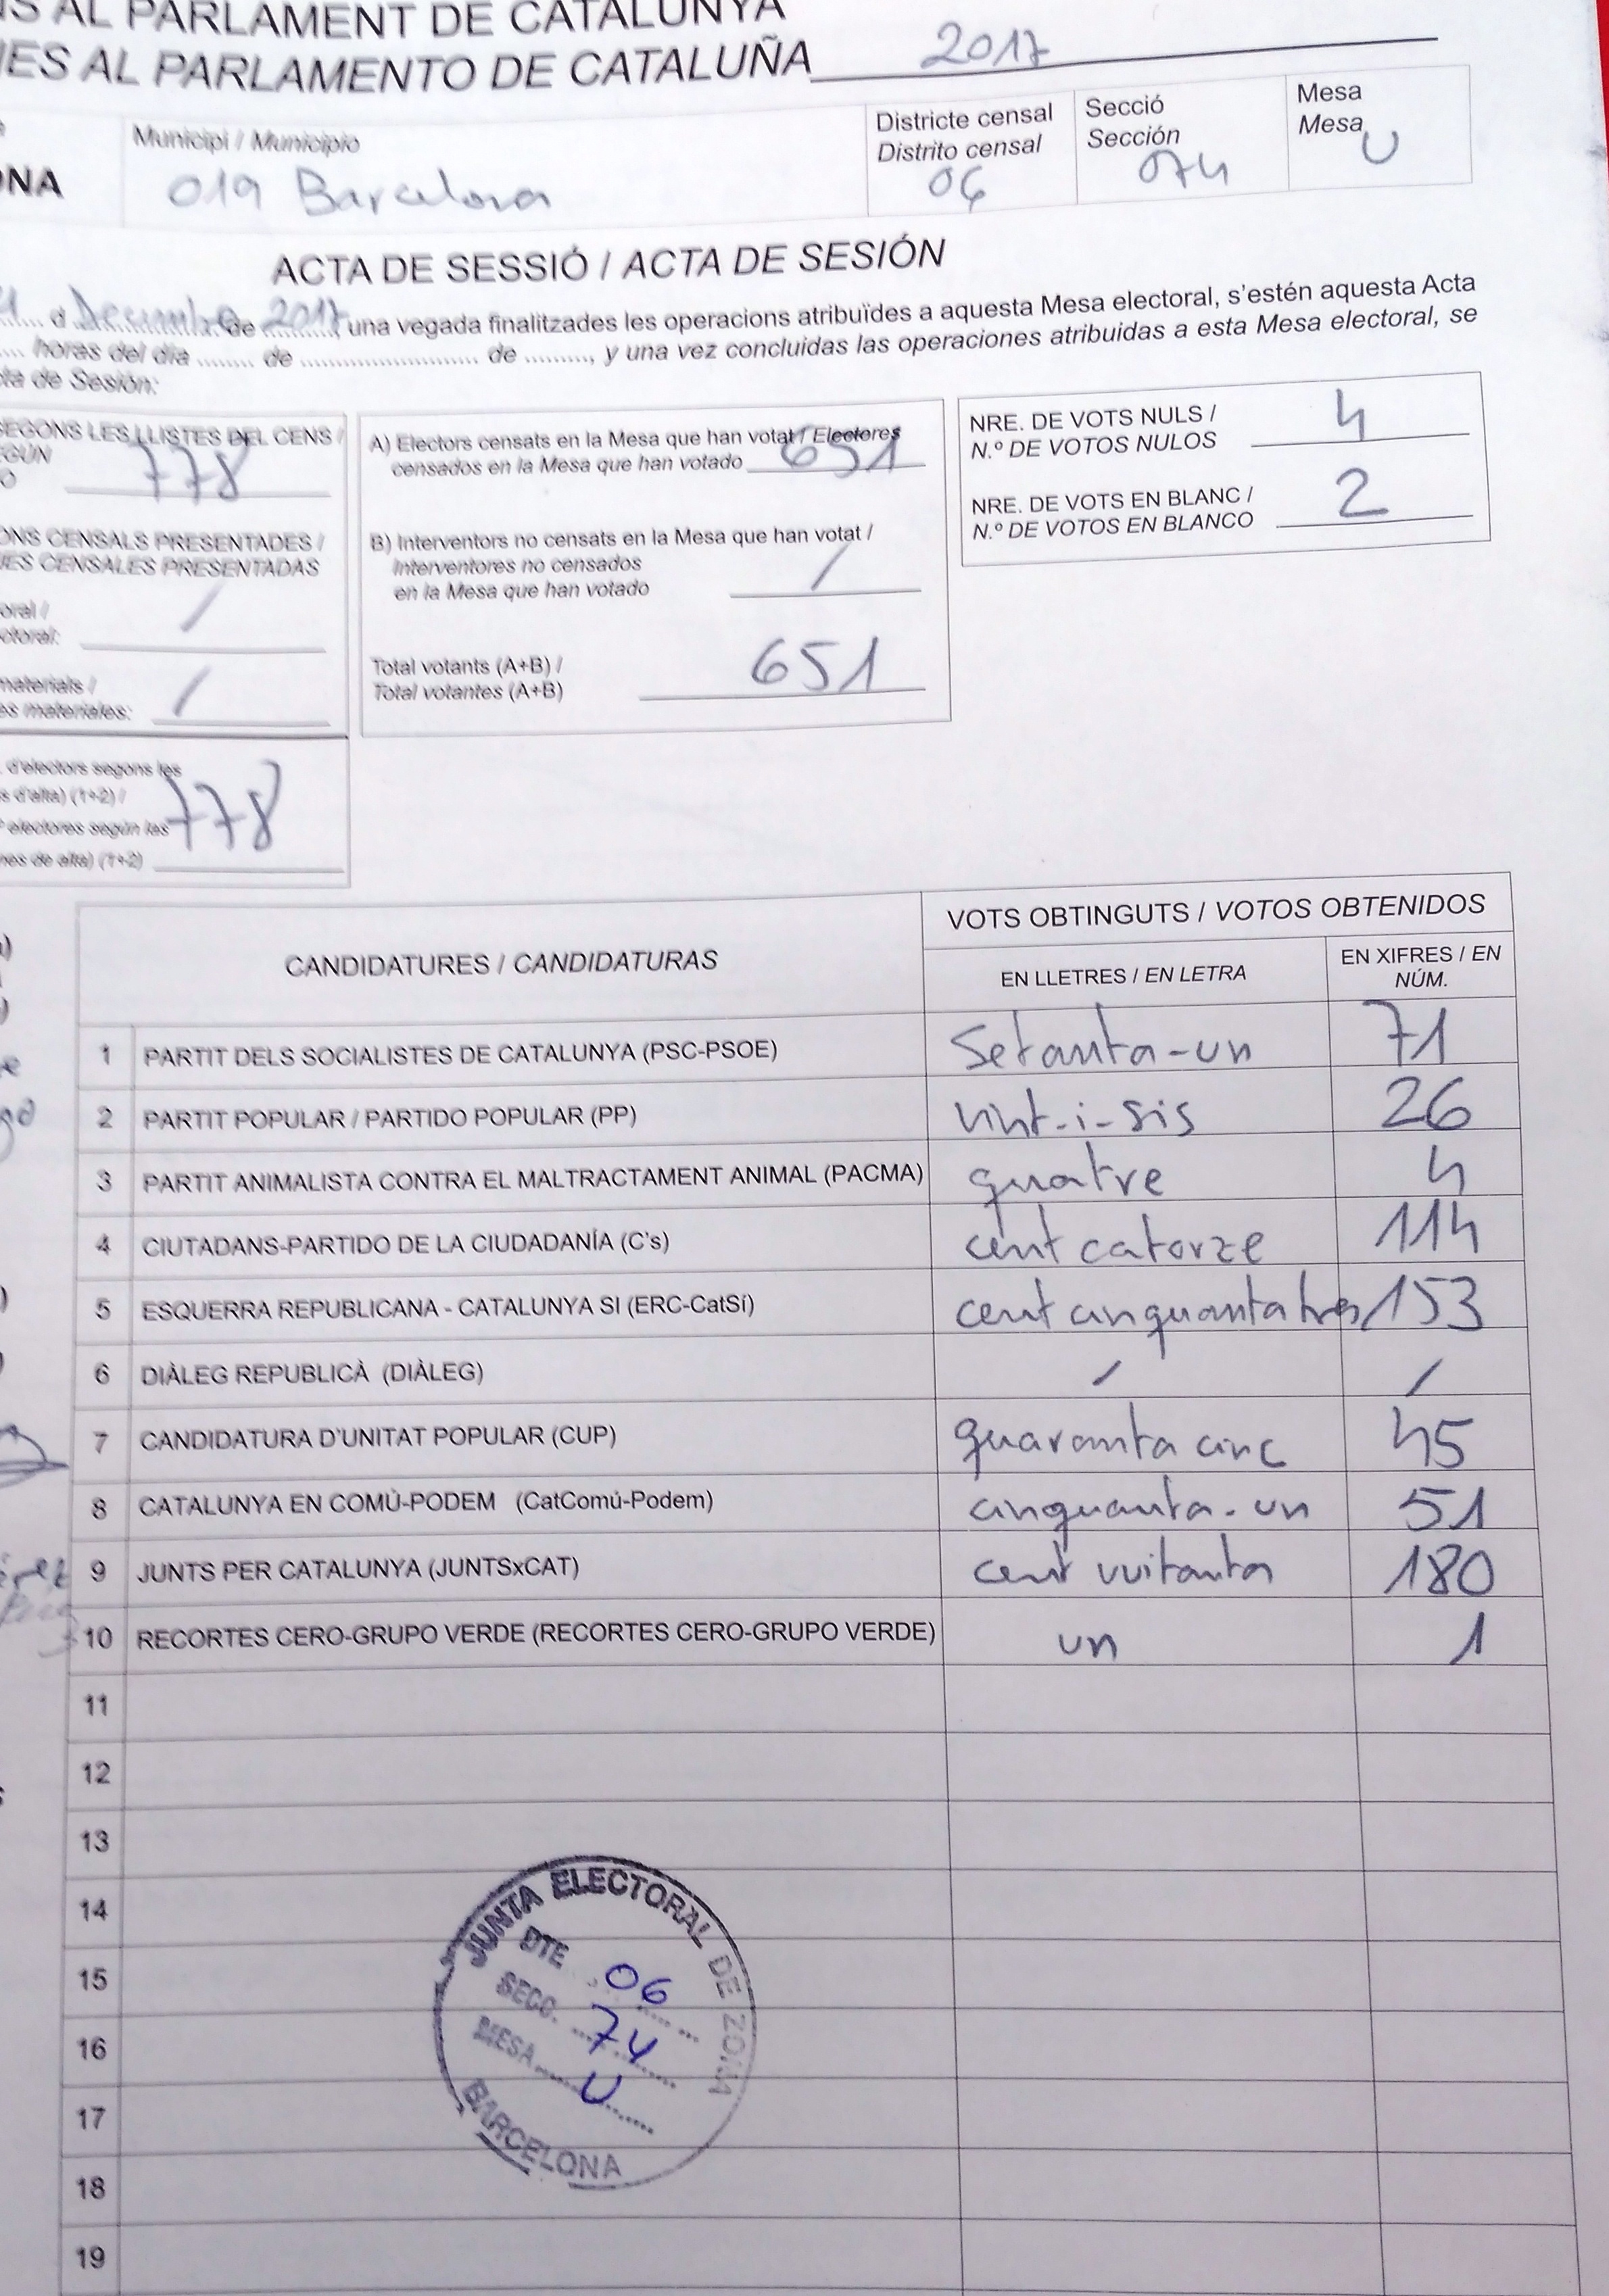 AL PARLAMENT DE CATALUNYA
AL PARLAMENTO DE CATALUÑA 2017
Municipi / Municipio
019 Barcelona
Districte censal
Distrito censal
06
Secció
Sección
074
Mesa
Mesa
U
ACTA DE SESSIÓ / ACTA DE SESIÓN
d de 2017, una vegada finalitzades les operacions atribuïdes a aquesta Mesa electoral, s'estén aquesta Acta
horas del día ........ de ........................ de ........., y una vez concluidas las operaciones atribuidas a esta Mesa electoral, se
de Sesión:
SEGONS LES LLISTES DEL CENS /
778
CENSALS PRESENTADES /
CENSALES PRESENTADAS
/
materials /
materiales: /
d'electors segons les
d'alta) (1+2) /
electores según las
de alta) (1+2)
778
A) Electors censats en la Mesa que han votat / Electores
censados en la Mesa que han votado 651
B) Interventors no censats en la Mesa que han votat /
Interventores no censados
en la Mesa que han votado /
Total votants (A+B) /
Total votantes (A+B) 651
NRE. DE VOTS NULS /
N.º DE VOTOS NULOS 4
NRE. DE VOTS EN BLANC /
N.º DE VOTOS EN BLANCO 2
CANDIDATURES / CANDIDATURAS
VOTS OBTINGUTS / VOTOS OBTENIDOS
EN LLETRES / EN LETRA
EN XIFRES / EN
NÚM.
1 PARTIT DELS SOCIALISTES DE CATALUNYA (PSC-PSOE) Setanta-un 71
2 PARTIT POPULAR / PARTIDO POPULAR (PP) vint-i-sis 26
3 PARTIT ANIMALISTA CONTRA EL MALTRACTAMENT ANIMAL (PACMA) quatre 4
4 CIUTADANS-PARTIDO DE LA CIUDADANÍA (C's) cent catorze 114
5 ESQUERRA REPUBLICANA - CATALUNYA SI (ERC-CatSí) cent cinquanta tres 153
6 DIÀLEG REPUBLICÀ (DIÀLEG) / /
7 CANDIDATURA D'UNITAT POPULAR (CUP) quaranta cinc 45
8 CATALUNYA EN COMÚ-PODEM (CatComú-Podem) cinquanta-un 51
9 JUNTS PER CATALUNYA (JUNTSxCAT) cent vuitanta 180
10 RECORTES CERO-GRUPO VERDE (RECORTES CERO-GRUPO VERDE) un 1
11
12
13
14
15
16
17
18
19
JUNTA ELECTORAL DE ZONA
DTE 06
SECC. 74
MESA U
BARCELONA